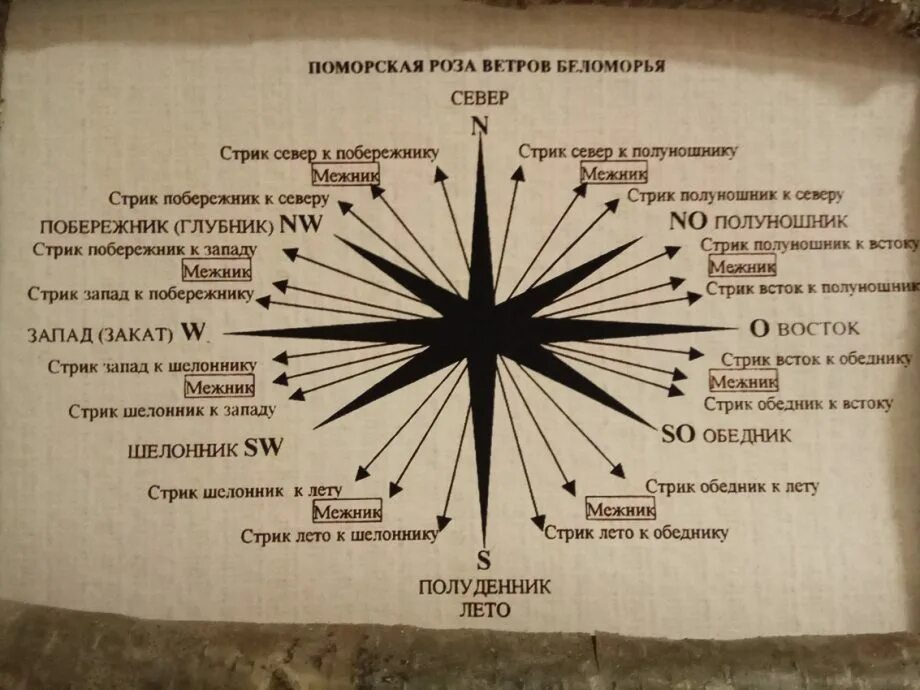 ПОМОРСКАЯ РОЗА ВЕТРОВ БЕЛОМОРЬЯ
СЕВЕР
N
Стрик север к побережнику
Стрик север к полуношнику
Межник
Межник
Стрик побережник к северу
Стрик полуношник к северу
ПОБЕРЕЖНИК (ГЛУБНИК) NW
NO ПОЛУНОШНИК
Стрик побережник к западу
Стрик полуношник к встоку
Межник
Межник
Стрик запад к побережнику
Стрик всток к полуношник
ЗАПАД (ЗАКАТ) W
O ВОСТОК
Стрик запад к шелоннику
Стрик всток к обеднику
Межник
Межник
Стрик шелонник к западу
Стрик обедник к встоку
ШЕЛОННИК SW
SO ОБЕДНИК
Стрик шелонник к лету
Стрик обедник к лету
Межник
Межник
Стрик лето к шелоннику
Стрик лето к обеднику
S
ПОЛУДЕННИК
ЛЕТО